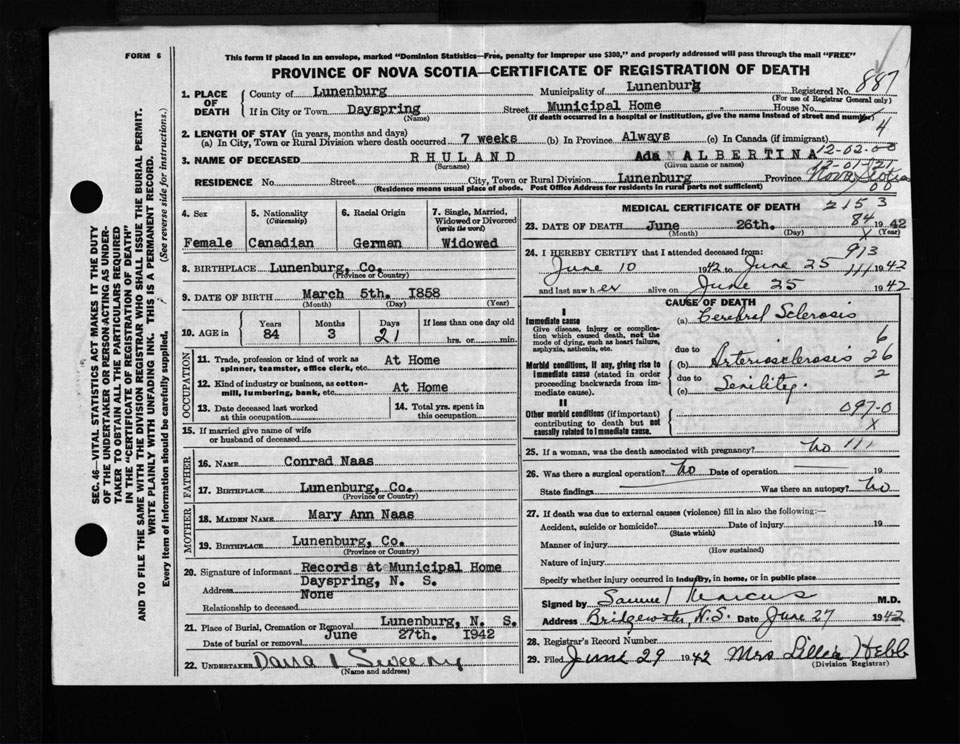 FORM 6
This form if placed in an envelope, marked "Dominion Statistics—Free, penalty for improper use $300," and properly addressed will pass through the mail "FREE"
PROVINCE OF NOVA SCOTIA—CERTIFICATE OF REGISTRATION OF DEATH
887
1. PLACE OF DEATH
County of Lunenburg Municipality of Lunenburg Registered No.
(For use of Registrar General only)
If in City or Town Dayspring Street Municipal Home House No.
(Name) (If death occurred in a hospital or institution, give name instead of street and number)
4
2. LENGTH OF STAY (in years, months and days)
(a) In City, Town or Rural Division where death occurred 7 weeks (b) In Province Always (c) In Canada (if immigrant)
12-02-00
3. NAME OF DECEASED RHULAND Ada ALBERTINA
(Surname) (Given name or names)
12-01/21
RESIDENCE No. Street City, Town or Rural Division Lunenburg Province Nova Scotia
(Residence means usual place of abode. Post Office Address for residents in rural parts not sufficient)
00
4. Sex
Female
5. Nationality
(Citizenship)
Canadian
6. Racial Origin
German
7. Single, Married, Widowed or Divorced
(write the word)
Widowed
8. BIRTHPLACE Lunenburg, Co.
(Province or Country)
9. DATE OF BIRTH March 5th. 1858
(Month) (Day) (Year)
10. AGE in
Years Months Days If less than one day old
84 3 21 hrs. or min.
OCCUPATION
11. Trade, profession or kind of work as spinner, teamster, office clerk, etc. At Home
12. Kind of industry or business, as cotton-mill, lumbering, bank, etc. At Home
13. Date deceased last worked at this occupation
14. Total yrs. spent in this occupation
15. If married give name of wife or husband of deceased
FATHER
16. NAME Conrad Naas
17. BIRTHPLACE Lunenburg, Co.
(Province or Country)
MOTHER
18. MAIDEN NAME Mary Ann Naas
19. BIRTHPLACE Lunenburg, Co.
(Province or Country)
20. Signature of informant Records at Municipal Home
Address Dayspring, N. S.
Relationship to deceased None
21. Place of Burial, Cremation or Removal Lunenburg, N. S.
Date of burial or removal June 27th. 1942
22. UNDERTAKER
(Name and address)
MEDICAL CERTIFICATE OF DEATH
215 3
84
23. DATE OF DEATH June 26th. 1942
(Month) (Day) (Year)
X
24. I HEREBY CERTIFY that I attended deceased from:
913
June 10 1942 to June 25 1942
111
and last saw her alive on June 25 1942
CAUSE OF DEATH
I
Immediate cause
Give disease, injury or complication which caused death, not the mode of dying, such as heart failure, asphyxia, asthenia, etc.
(a) Cerebral Sclerosis
6
due to
Morbid conditions, if any, giving rise to immediate cause (stated in order proceeding backwards from immediate cause).
(b) Arteriosclerosis 26
due to
2
(c) Senility
II
Other morbid conditions (if important) contributing to death but not causally related to immediate cause.
097-0
X
25. If a woman, was the death associated with pregnancy? No 111
26. Was there a surgical operation? No Date of operation 19
State findings Was there an autopsy? No
27. If death was due to external causes (violence) fill in also the following:—
Accident, suicide or homicide? Date of injury 19
(State which)
Manner of injury
(How sustained)
Nature of injury
Specify whether injury occurred in industry, in home, or in public place
Signed by Samuel Marcus M.D.
Address Bridgewater, N.S. Date June 27 1942
28. Registrar's Record Number
29. Filed June 29 1942 Mrs Lillia Hebb
(Division Registrar)
SEC. 46—VITAL STATISTICS ACT MAKES IT THE DUTY
OF THE UNDERTAKER OR PERSON ACTING AS UNDER-
TAKER TO OBTAIN ALL THE PARTICULARS REQUIRED
IN THE "CERTIFICATE OF REGISTRATION OF DEATH"
AND TO FILE THE SAME WITH THE DIVISION REGISTRAR WHO SHALL ISSUE THE BURIAL PERMIT.
WRITE PLAINLY WITH UNFADING INK. THIS IS A PERMANENT RECORD.
Every item of information should be carefully supplied. (See reverse side for instructions.)